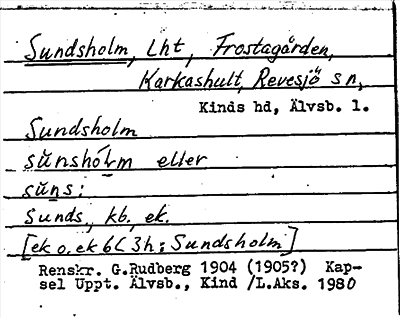 Sundsholm, Lht, Frostagården,
Karkashult, Revesjö sn,
Kinds hd, Älvsb. l.
Sundsholm
sŭnshólm eller
sŭns:
Sunds, kb, ek.
[ek o. ek 6C 3h; Sundsholm]
Renskr. G.Rudberg 1904 (1905?) Kap-
sel Uppt. Älvsb., Kind /L.Aks. 1980